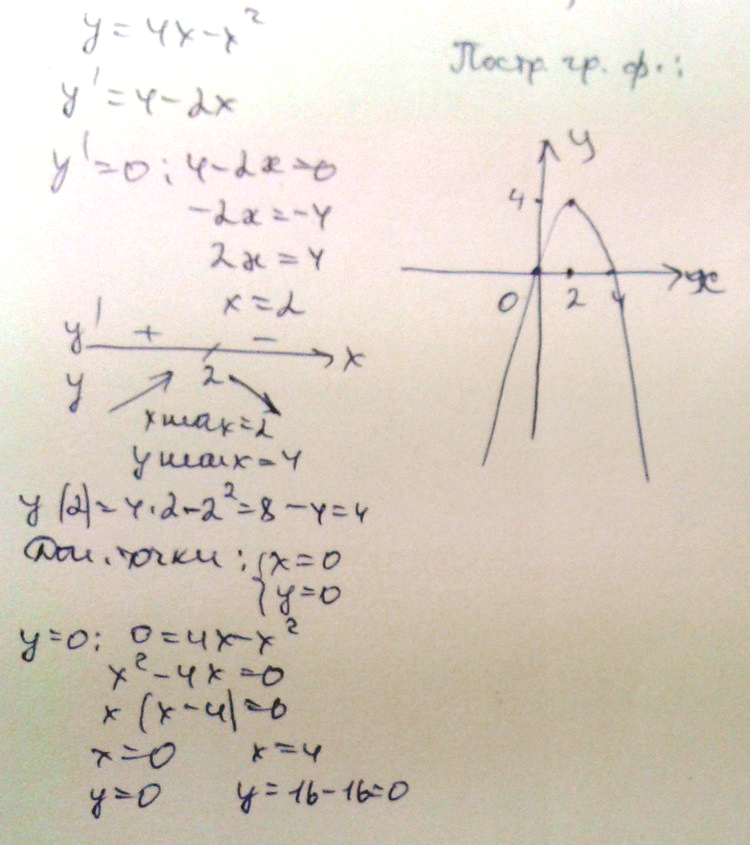 y = 4x - x²
y' = 4 - 2x
y' = 0 ; 4 - 2x = 0
-2x = -4
2x = 4
x = 2
y' + - x
y 2
x max = 2
y max = 4
y(2) = 4·2 - 2² = 8 - 4 = 4
Доп. точки : { x = 0
{ y = 0
y = 0 : 0 = 4x - x²
x² - 4x = 0
x (x - 4) = 0
x = 0 x = 4
y = 0 y = 16 - 16 = 0
Постр. гр. ф. :
y
4
0 2 4 x